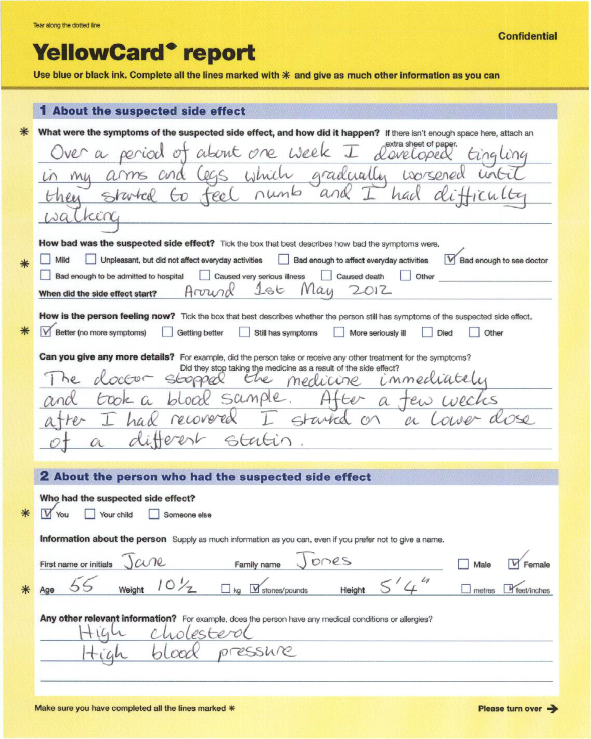 Tear along the dotted line
Confidential
YellowCard report
Use blue or black ink. Complete all the lines marked with * and give as much other information as you can
1 About the suspected side effect
* What were the symptoms of the suspected side effect, and how did it happen? If there isn't enough space here, attach an
extra sheet of paper.
Over a period of about one week I developed tingling
in my arms and legs which gradually worsened until
they started to feel numb and I had difficulty
walking
How bad was the suspected side effect? Tick the box that best describes how bad the symptoms were.
* Mild Unpleasant, but did not affect everyday activities Bad enough to affect everyday activities Bad enough to see doctor
Bad enough to be admitted to hospital Caused very serious illness Caused death Other
When did the side effect start? Around 1st May 2012
How is the person feeling now? Tick the box that best describes whether the person still has symptoms of the suspected side effect.
* Better (no more symptoms) Getting better Still has symptoms More seriously ill Died Other
Can you give any more details? For example, did the person take or receive any other treatment for the symptoms?
Did they stop taking the medicine as a result of the side effect?
The doctor stopped the medicine immediately
and took a blood sample. After a few weeks
after I had recovered I started on a lower dose
of a different statin.
2 About the person who had the suspected side effect
Who had the suspected side effect?
* You Your child Someone else
Information about the person Supply as much information as you can, even if you prefer not to give a name.
First name or initials Jane Family name Jones Male Female
* Age 55 Weight 10 1/2 kg stones/pounds Height 5'4" metres feet/inches
Any other relevant information? For example, does the person have any medical conditions or allergies?
High cholesterol
High blood pressure
Make sure you have completed all the lines marked *
Please turn over →